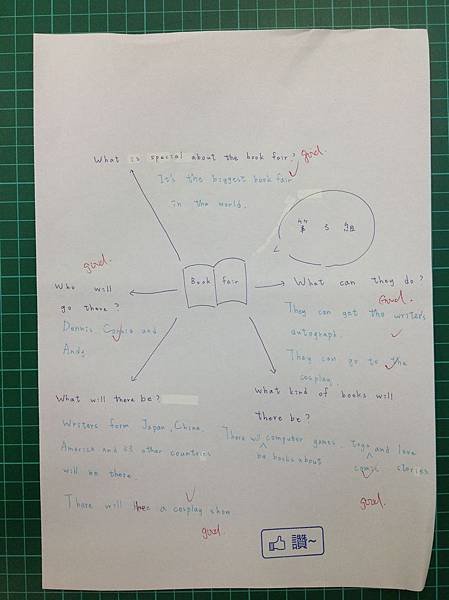 What is special about the book fair?
good.
It's the biggest book fair
in the world.
第 5 組
Book fair
good.
Who will
go there?
Dennis, Connie and
Andy.
What can they do?
Good.
They can get the writer's
autograph.
They can go to the
cosplay.
What will there be?
Writers form Japan, China,
America and 63 other countries
will be there.
There will be a cosplay show
good.
What kind of books will
there be?
There will computer games, toys and love
be books about comic stories
good.
讚~